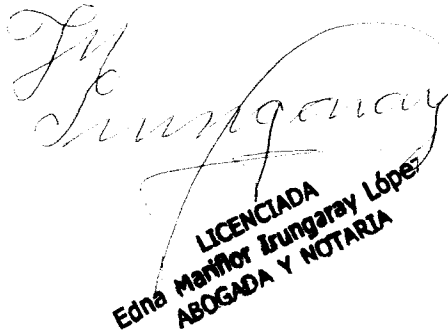 Irungaray
LICENCIADA
Edna Mariflor Irungaray López
ABOGADA Y NOTARIA